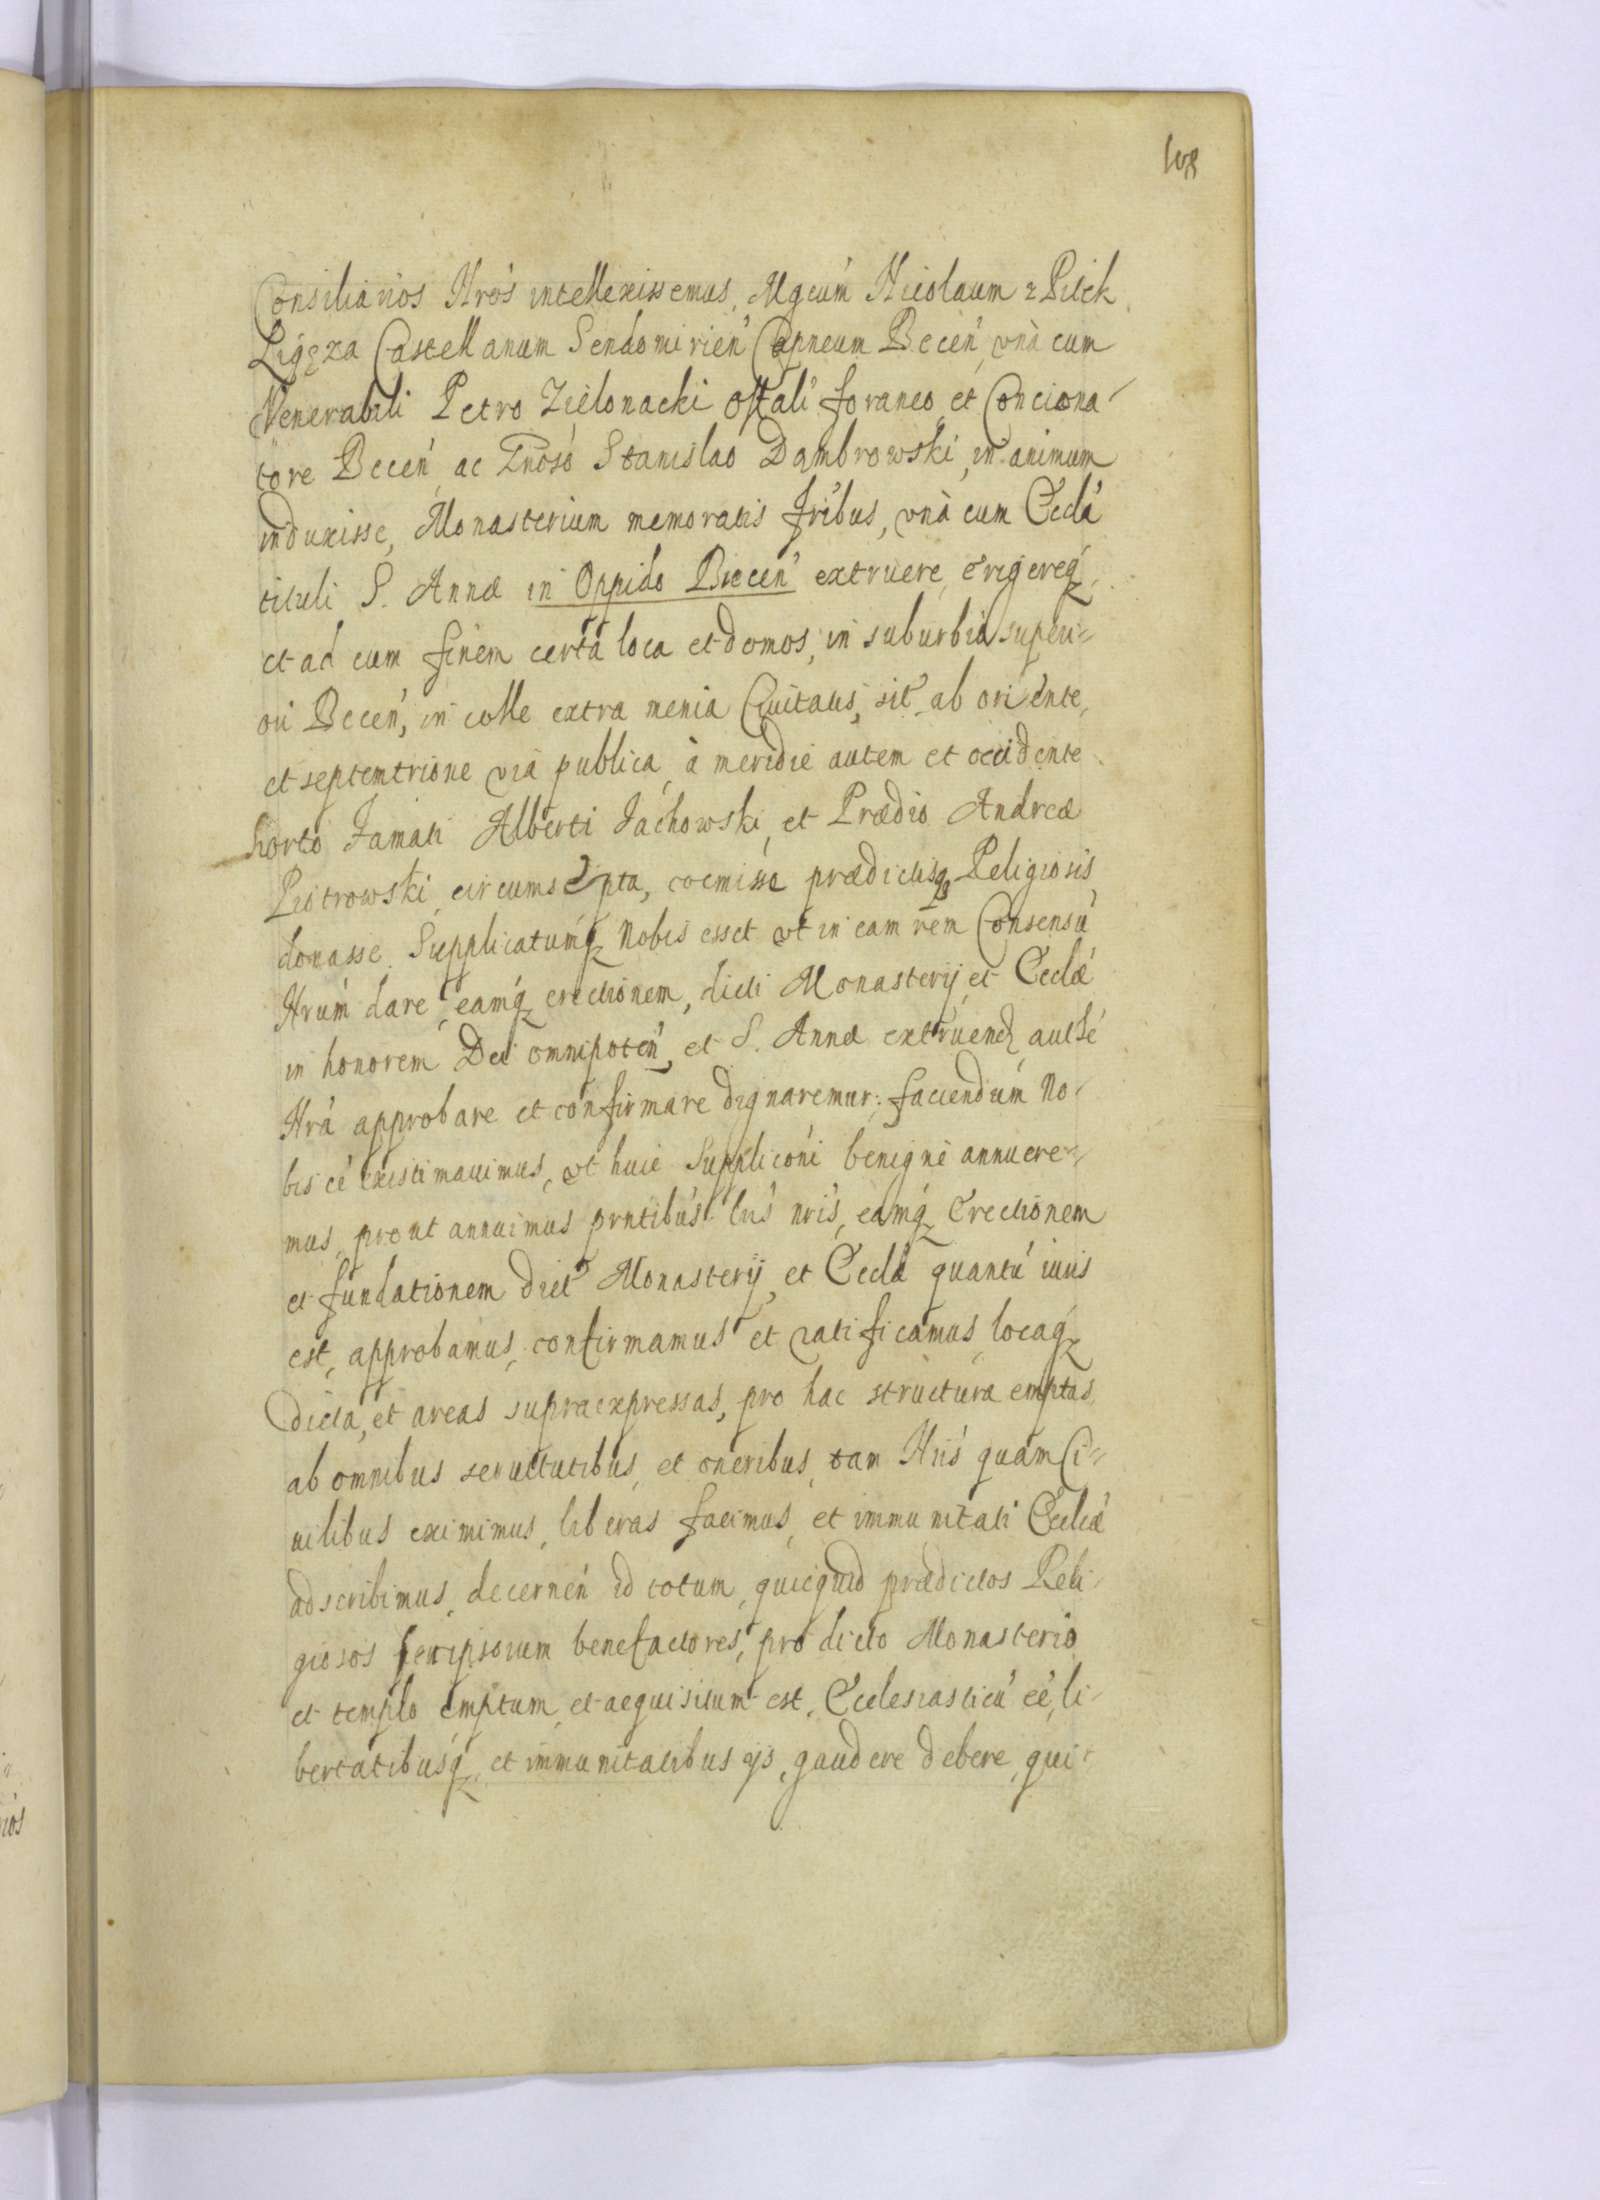 108
Consiliarios Nrós intellexissemus, Mgcúm Nicolaum z Pilck
Ligęza Castellanum Sendomirień Capneum Becen̕, vnà cum
Venerabili Petro Zielonacki offali̕ foraneo, et Conciona-
tore Becen̕, ac Gnósó Stanislao Dąmbrowski, in animum
induxisse, Monasterium memoratis fri̕bus, vnà cum Eccla̕
tituli S. Annæ in Oppido Biecen̕ extruere, erigereq́,
et ad eum finem certa loca et domos, in suburbio superi-
ori Becen̕, in colle extra menia Ciuitatis, sit̕ ab oriente,
et septemtrione via publica, à meridie autem et occidente
horto Famati Alberti Jachowski, et Prædio Andreæ
Piotrowski, circumscripta, coemisse prædictisq́ Religiosis,
donasse. Supplicatumq́ Nobis esset vt in eam rem Consensú
Nrúm dare, eamq́ erectionem, dicti Monasterij, et Ecclæ̕
in honorem Dei omnipoteń, et S. Annæ extruend autħé
Nrá approbare et confirmare dignaremur: faciendúm No-
bis eé existimauimus, vt huic Suppliconi̕ benignè annuere-
mus, prout annuimus prntibu̕s lri̕s nri̕s, eamq́ Erectionem
et fundationem dict̕ Monasterij, et Ecclæ̕ quantú iuris
est, approbamus, confirmamus et ratificamus, locaq́
dicta, et areas supraexpressas, pro hac structura emptas,
ab omnibus seruitutibus, et oneribus, tam Nri̕s quam Ci-
uilibus eximimus, liberas facimus, et immunitati Eccliæ̕
adscribimus, decerneń id totum, quicquid prædictos Reli-
giosos seu ipsorum benefactores, pro dicto Monasterio
et templo emptum, et aequisitum est, Ecclesiasticú eé, li-
bertatibusq́, et immunitatibus ijs, gaudere debere, qui-